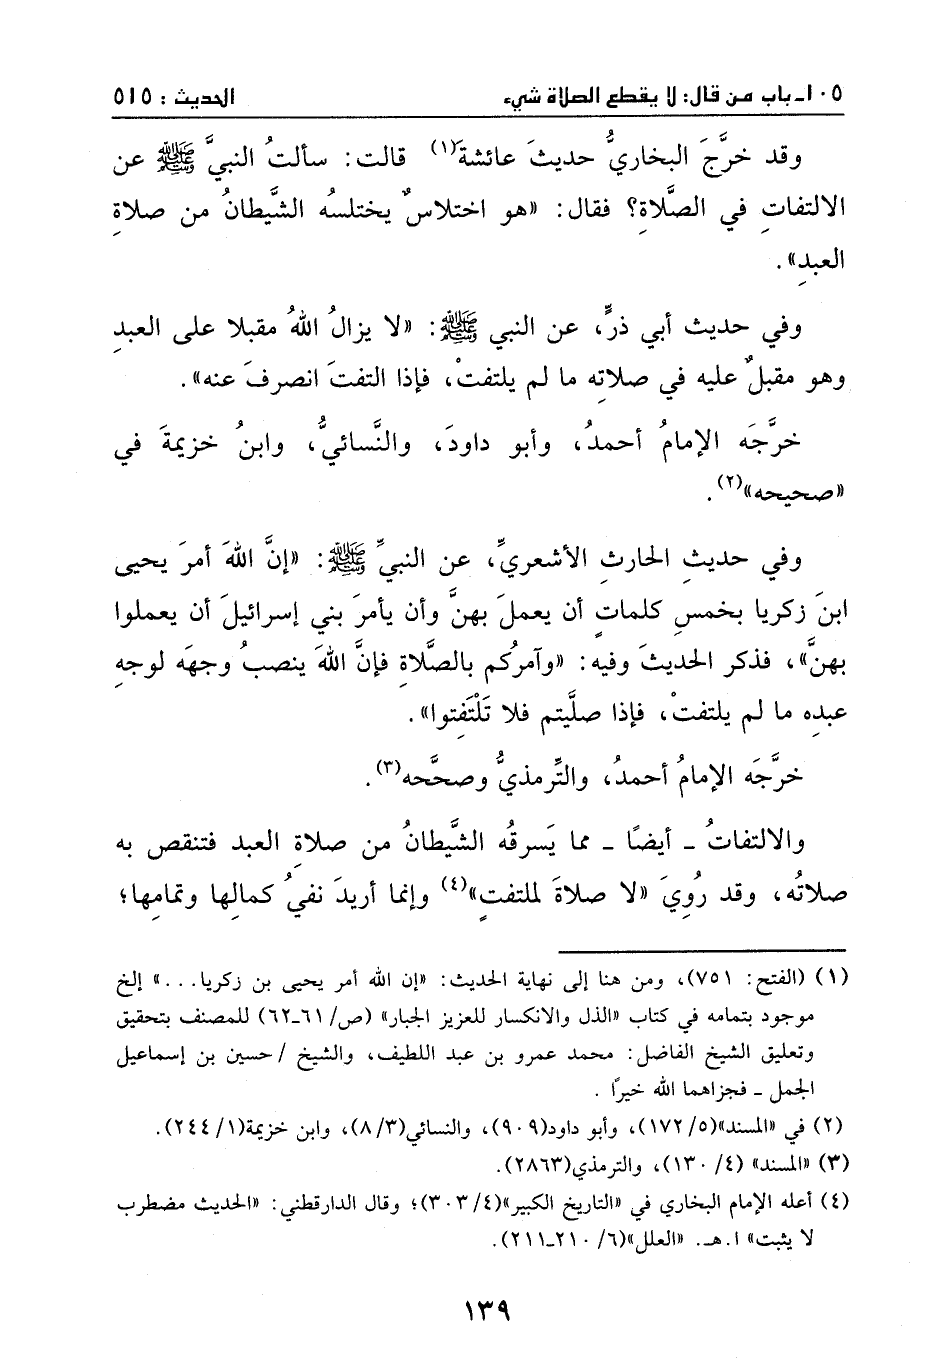 ١٠٥- باب من قال: لا يقطع الصلاة شيء الحديث : ٥١٥
وقد خرَّجَ البخاريُّ حديثَ عائشةَ(١) قالت: سألتُ النبيَّ ﷺ عن
الالتفاتِ في الصَّلاةِ؟ فقال: «هو اختلاسٌ يختلسُه الشَّيطانُ من صلاةِ
العبدِ».
وفي حديث أبي ذرٍّ، عن النبي ﷺ: «لا يزالُ اللهُ مقبلا على العبدِ
وهو مقبلٌ عليه في صلاتِه ما لم يلتفتْ، فإذا التفتَ انصرفَ عنه».
خرَّجَه الإمامُ أحمدُ، وأبو داودَ، والنَّسائيُّ، وابنُ خزيمةَ في
«صحيحه»(٢).
وفي حديثِ الحارثِ الأشعريِّ، عن النبيِّ ﷺ: «إنَّ اللهَ أمرَ يحيى
ابنَ زكريا بخمسِ كلماتٍ أن يعملَ بهنَّ وأن يأمرَ بني إسرائيلَ أن يعملوا
بهنَّ»، فذكر الحديثَ وفيه: «وآمركُم بالصَّلاةِ فإنَّ اللهَ ينصبُ وجهَه لوجهِ
عبدِه ما لم يلتفتْ، فإذا صلَّيتم فلا تَلْتَفِتوا».
خرَّجَه الإمامُ أحمدُ، والتِّرمذيُّ وصحَّحه(٣).
والالتفاتُ - أيضًا - مما يَسرقُه الشَّيطانُ من صلاةِ العبد فتنقص به
صلاتُه، وقد رُوِيَ «لا صلاةَ لملتفتٍ»(٤) وإنما أريدَ نفيُ كمالِها وتمامِها؛
(١) (الفتح: ٧٥١)، ومن هنا إلى نهاية الحديث: «إن الله أمر يحيى بن زكريا...» إلخ
موجود بتمامه في كتاب «الذل والانكسار للعزيز الجبار» (ص/٦١-٦٢) للمصنف بتحقيق
وتعليق الشيخ الفاضل: محمد عمرو بن عبد اللطيف، والشيخ /حسين بن إسماعيل
الجمل - فجزاهما الله خيرًا .
(٢) في «المسند»(١٧٢/٥)، وأبو داود(٩٠٩)، والنسائي(٨/٣)، وابن خزيمة(٢٤٤/١).
(٣) «المسند» (١٣٠/٤)، والترمذي(٢٨٦٣).
(٤) أعله الإمام البخاري في «التاريخ الكبير»(٣٠٣/٤)؛ وقال الدارقطني: «الحديث مضطرب
لا يثبت» ا.هـ. «العلل»(٢١٠/٦-٢١١).
١٣٩